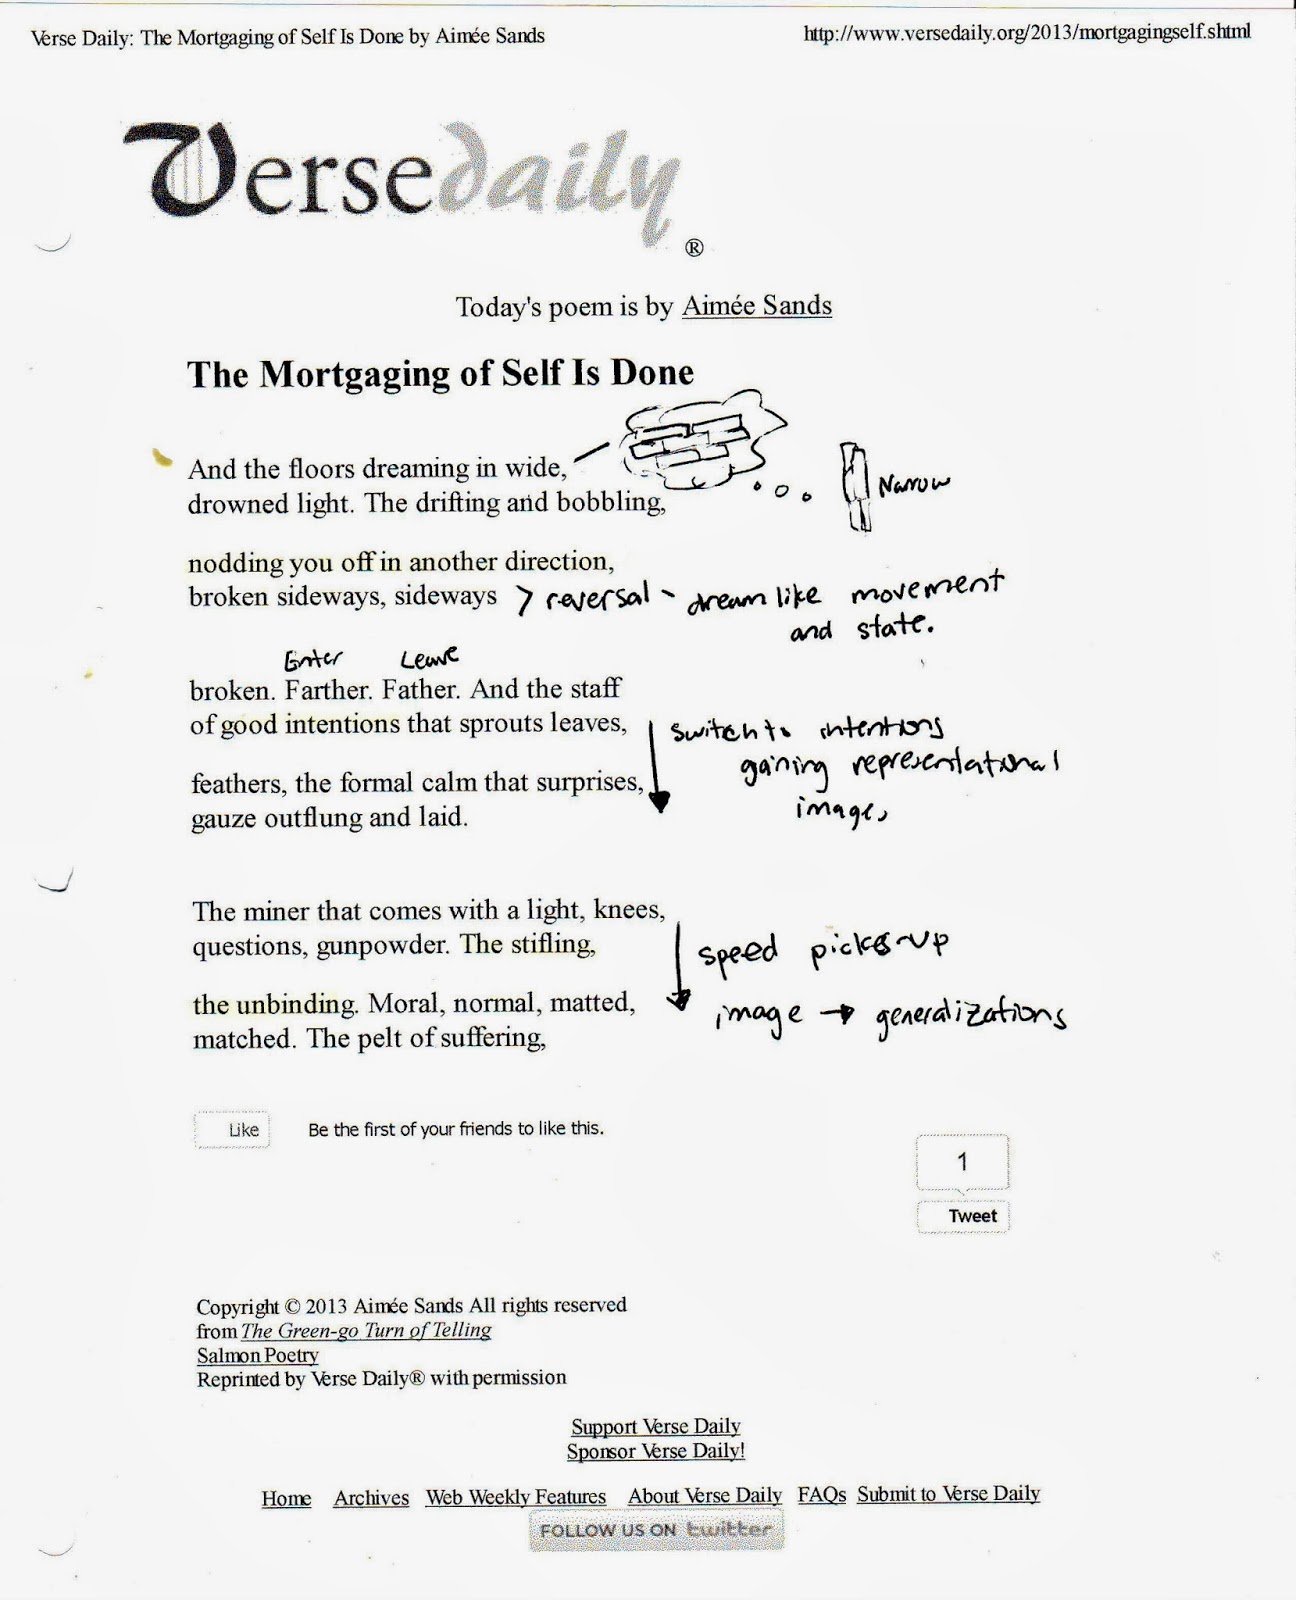 Verse Daily: The Mortgaging of Self Is Done by Aimée Sands
http://www.versedaily.org/2013/mortgagingself.shtml
Versedaily
®
Today's poem is by Aimée Sands
The Mortgaging of Self Is Done
And the floors dreaming in wide,
drowned light. The drifting and bobbling,
Narrow
nodding you off in another direction,
broken sideways, sideways > reversal - dream like movement
and state.
Enter Leave
broken. Farther. Father. And the staff
of good intentions that sprouts leaves,
switch to intentions
gaining representational
image,
feathers, the formal calm that surprises,
gauze outflung and laid.
The miner that comes with a light, knees,
questions, gunpowder. The stifling,
speed picks-up
the unbinding. Moral, normal, matted,
image → generalizations
matched. The pelt of suffering,
Like
Be the first of your friends to like this.
1
Tweet
Copyright © 2013 Aimée Sands All rights reserved
from The Green-go Turn of Telling
Salmon Poetry
Reprinted by Verse Daily® with permission
Support Verse Daily
Sponsor Verse Daily!
Home Archives Web Weekly Features About Verse Daily FAQs Submit to Verse Daily
FOLLOW US ON twitter